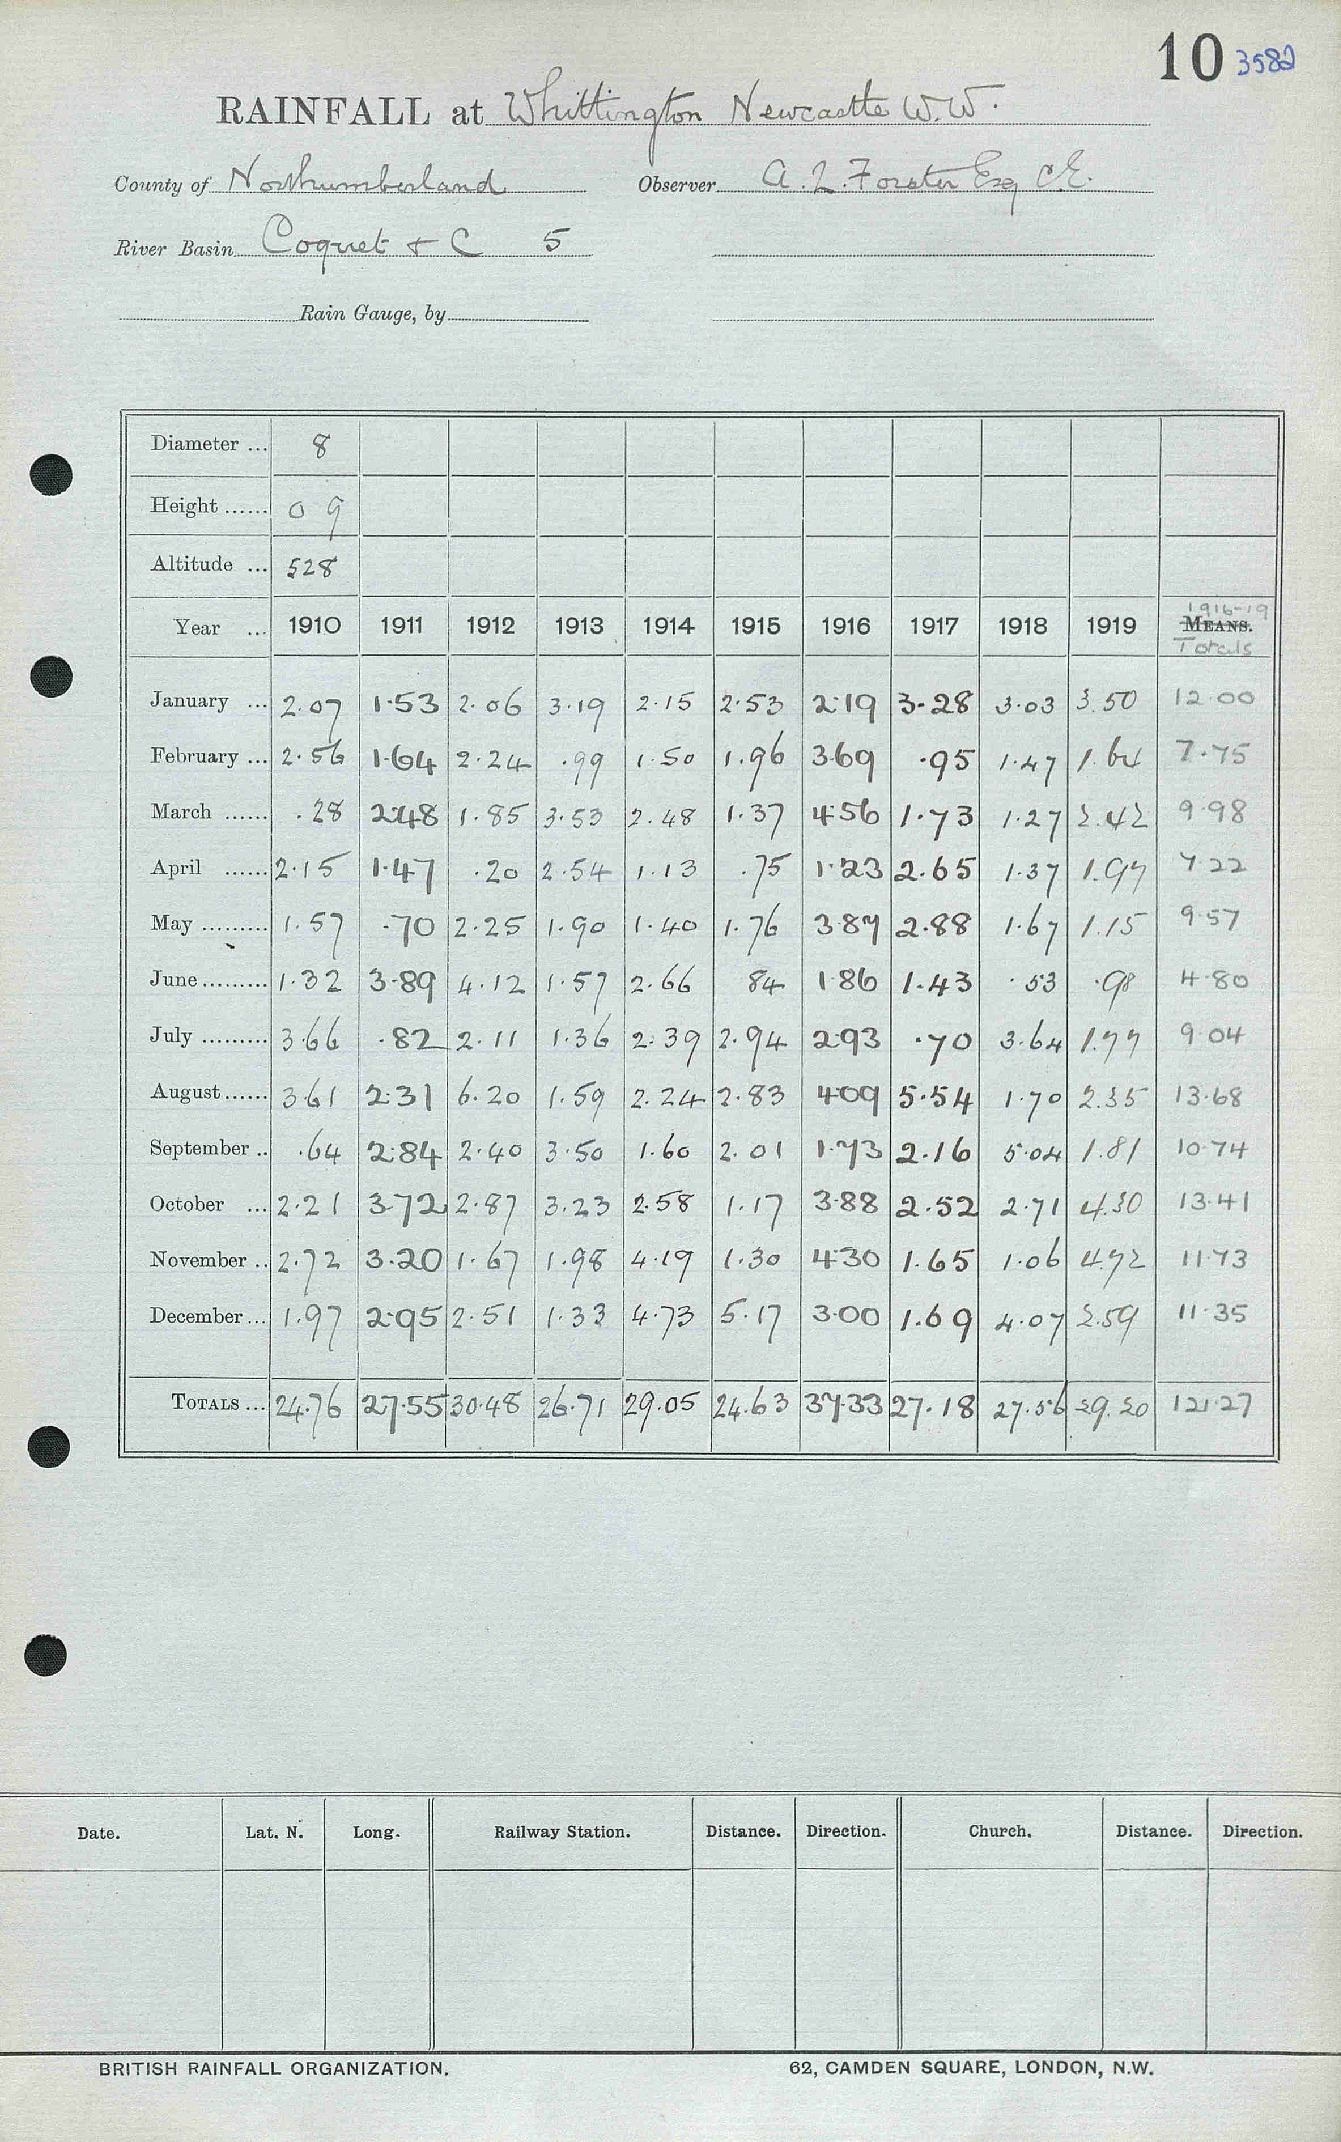 10 3582
RAINFALL at Whittington Newcastle W.W.
County of Northumberland Observer A. L. Forster Esq C.E.
River Basin Coquet & C 5
Rain Gauge, by
Diameter ... 8
Height ...... 0 9
Altitude ... 528
1916-19
Year ... 1910 1911 1912 1913 1914 1915 1916 1917 1918 1919 MEANS.
Totals
January ... 2.07 1.53 2.06 3.19 2.15 2.53 2.19 3.28 3.03 3.50 12.00
February ... 2.56 1.64 2.24 .99 1.50 1.96 3.69 .95 1.47 1.64 7.75
March ...... .28 2.48 1.85 3.53 2.48 1.37 4.56 1.73 1.27 2.42 9.98
April ...... 2.15 1.47 .20 2.54 1.13 .75 1.23 2.65 1.37 1.97 7.22
May ......... 1.57 .70 2.25 1.90 1.40 1.76 3.87 2.88 1.67 1.15 9.57
June ......... 1.32 3.89 4.12 1.57 2.66 84 1.86 1.43 .53 .98 4.80
July ......... 3.66 .82 2.11 1.36 2.39 2.94 2.93 .70 3.64 1.77 9.04
August ...... 3.61 2.31 6.20 1.59 2.24 2.83 4.09 5.54 1.70 2.35 13.68
September .. .64 2.84 2.40 3.50 1.60 2.01 1.73 2.16 5.04 1.81 10.74
October ... 2.21 3.72 2.87 3.23 2.58 1.17 3.88 2.52 2.71 4.30 13.41
November .. 2.72 3.20 1.67 1.98 4.19 1.30 4.30 1.65 1.06 4.72 11.73
December ... 1.97 2.95 2.51 1.33 4.73 5.17 3.00 1.69 4.07 2.59 11.35
TOTALS ... 24.76 27.55 30.48 26.71 29.05 24.63 37.33 27.18 27.56 29.20 121.27
Date. Lat. N. Long. Railway Station. Distance. Direction. Church. Distance. Direction.
BRITISH RAINFALL ORGANIZATION. 62, CAMDEN SQUARE, LONDON, N.W.